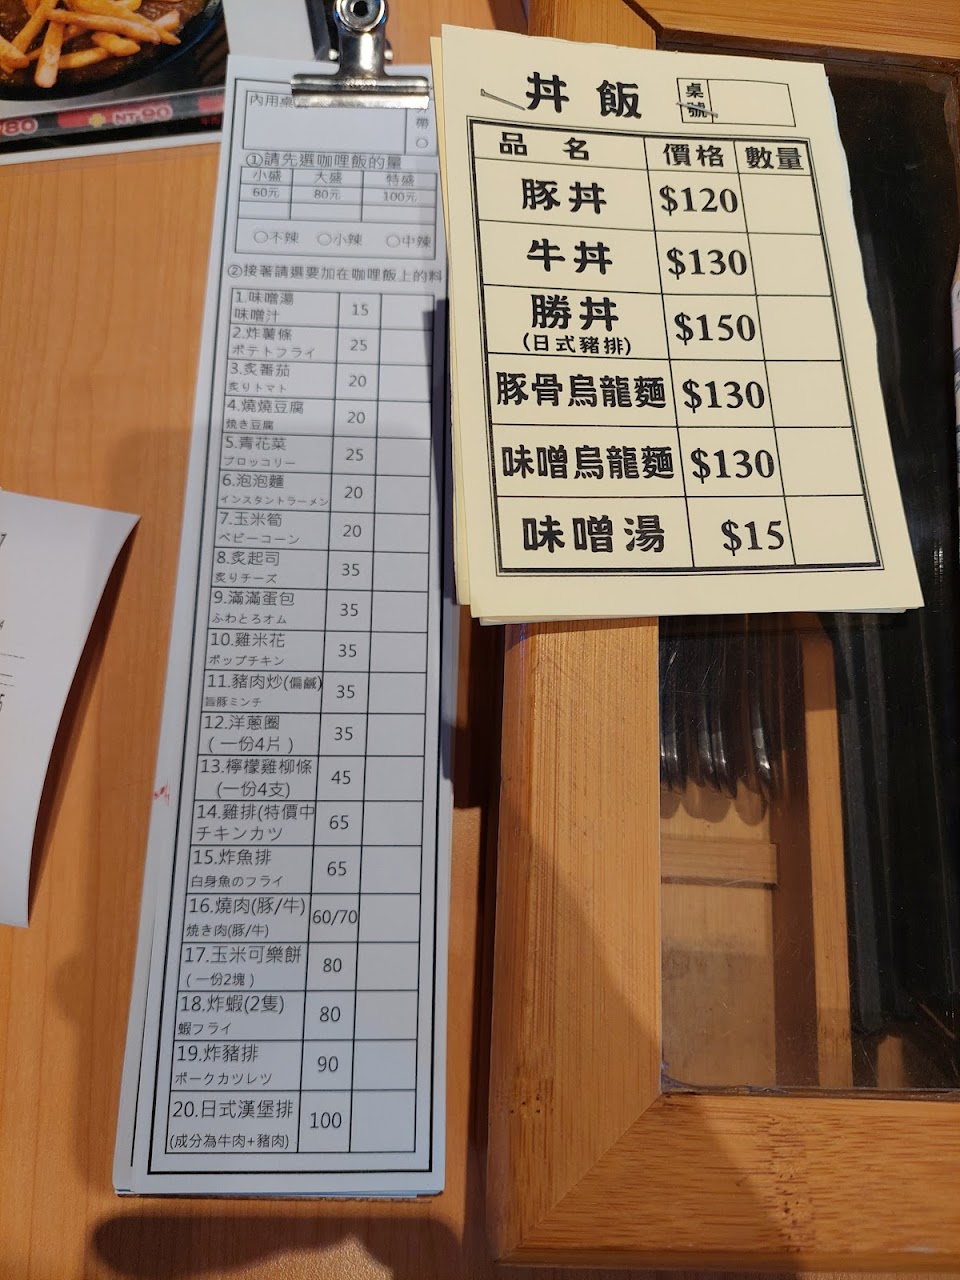 80
+ NT.90
內用桌
帶
①請先選咖哩飯的量
小盛 大盛 特盛
60元 80元 100元
○不辣 ○小辣 ○中辣
②接著請選要加在咖哩飯上的料
1.味噌湯 15
味噌汁
2.炸薯條 25
ポテトフライ
3.炙蕃茄 20
炙りトマト
4.燒燒豆腐 20
焼き豆腐
5.青花菜 25
ブロッコリー
6.泡泡麵 20
インスタントラーメン
7.玉米筍 20
ベビーコーン
8.炙起司 35
炙りチーズ
9.滿滿蛋包 35
ふわとろオム
10.雞米花 35
ポップチキン
11.豬肉炒(偏鹹) 35
旨豚ミンチ
12.洋蔥圈 35
(一份4片)
13.檸檬雞柳條 45
(一份4支)
14.雞排(特價中 65
チキンカツ
15.炸魚排 65
白身魚のフライ
16.燒肉(豚/牛) 60/70
焼き肉(豚/牛)
17.玉米可樂餅 80
(一份2塊)
18.炸蝦(2隻) 80
蝦フライ
19.炸豬排 90
ポークカツレツ
20.日式漢堡排 100
(成分為牛肉+豬肉)
丼飯 桌號
品名 價格 數量
豚丼 $120
牛丼 $130
勝丼 $150
(日式豬排)
豚骨烏龍麵 $130
味噌烏龍麵 $130
味噌湯 $15